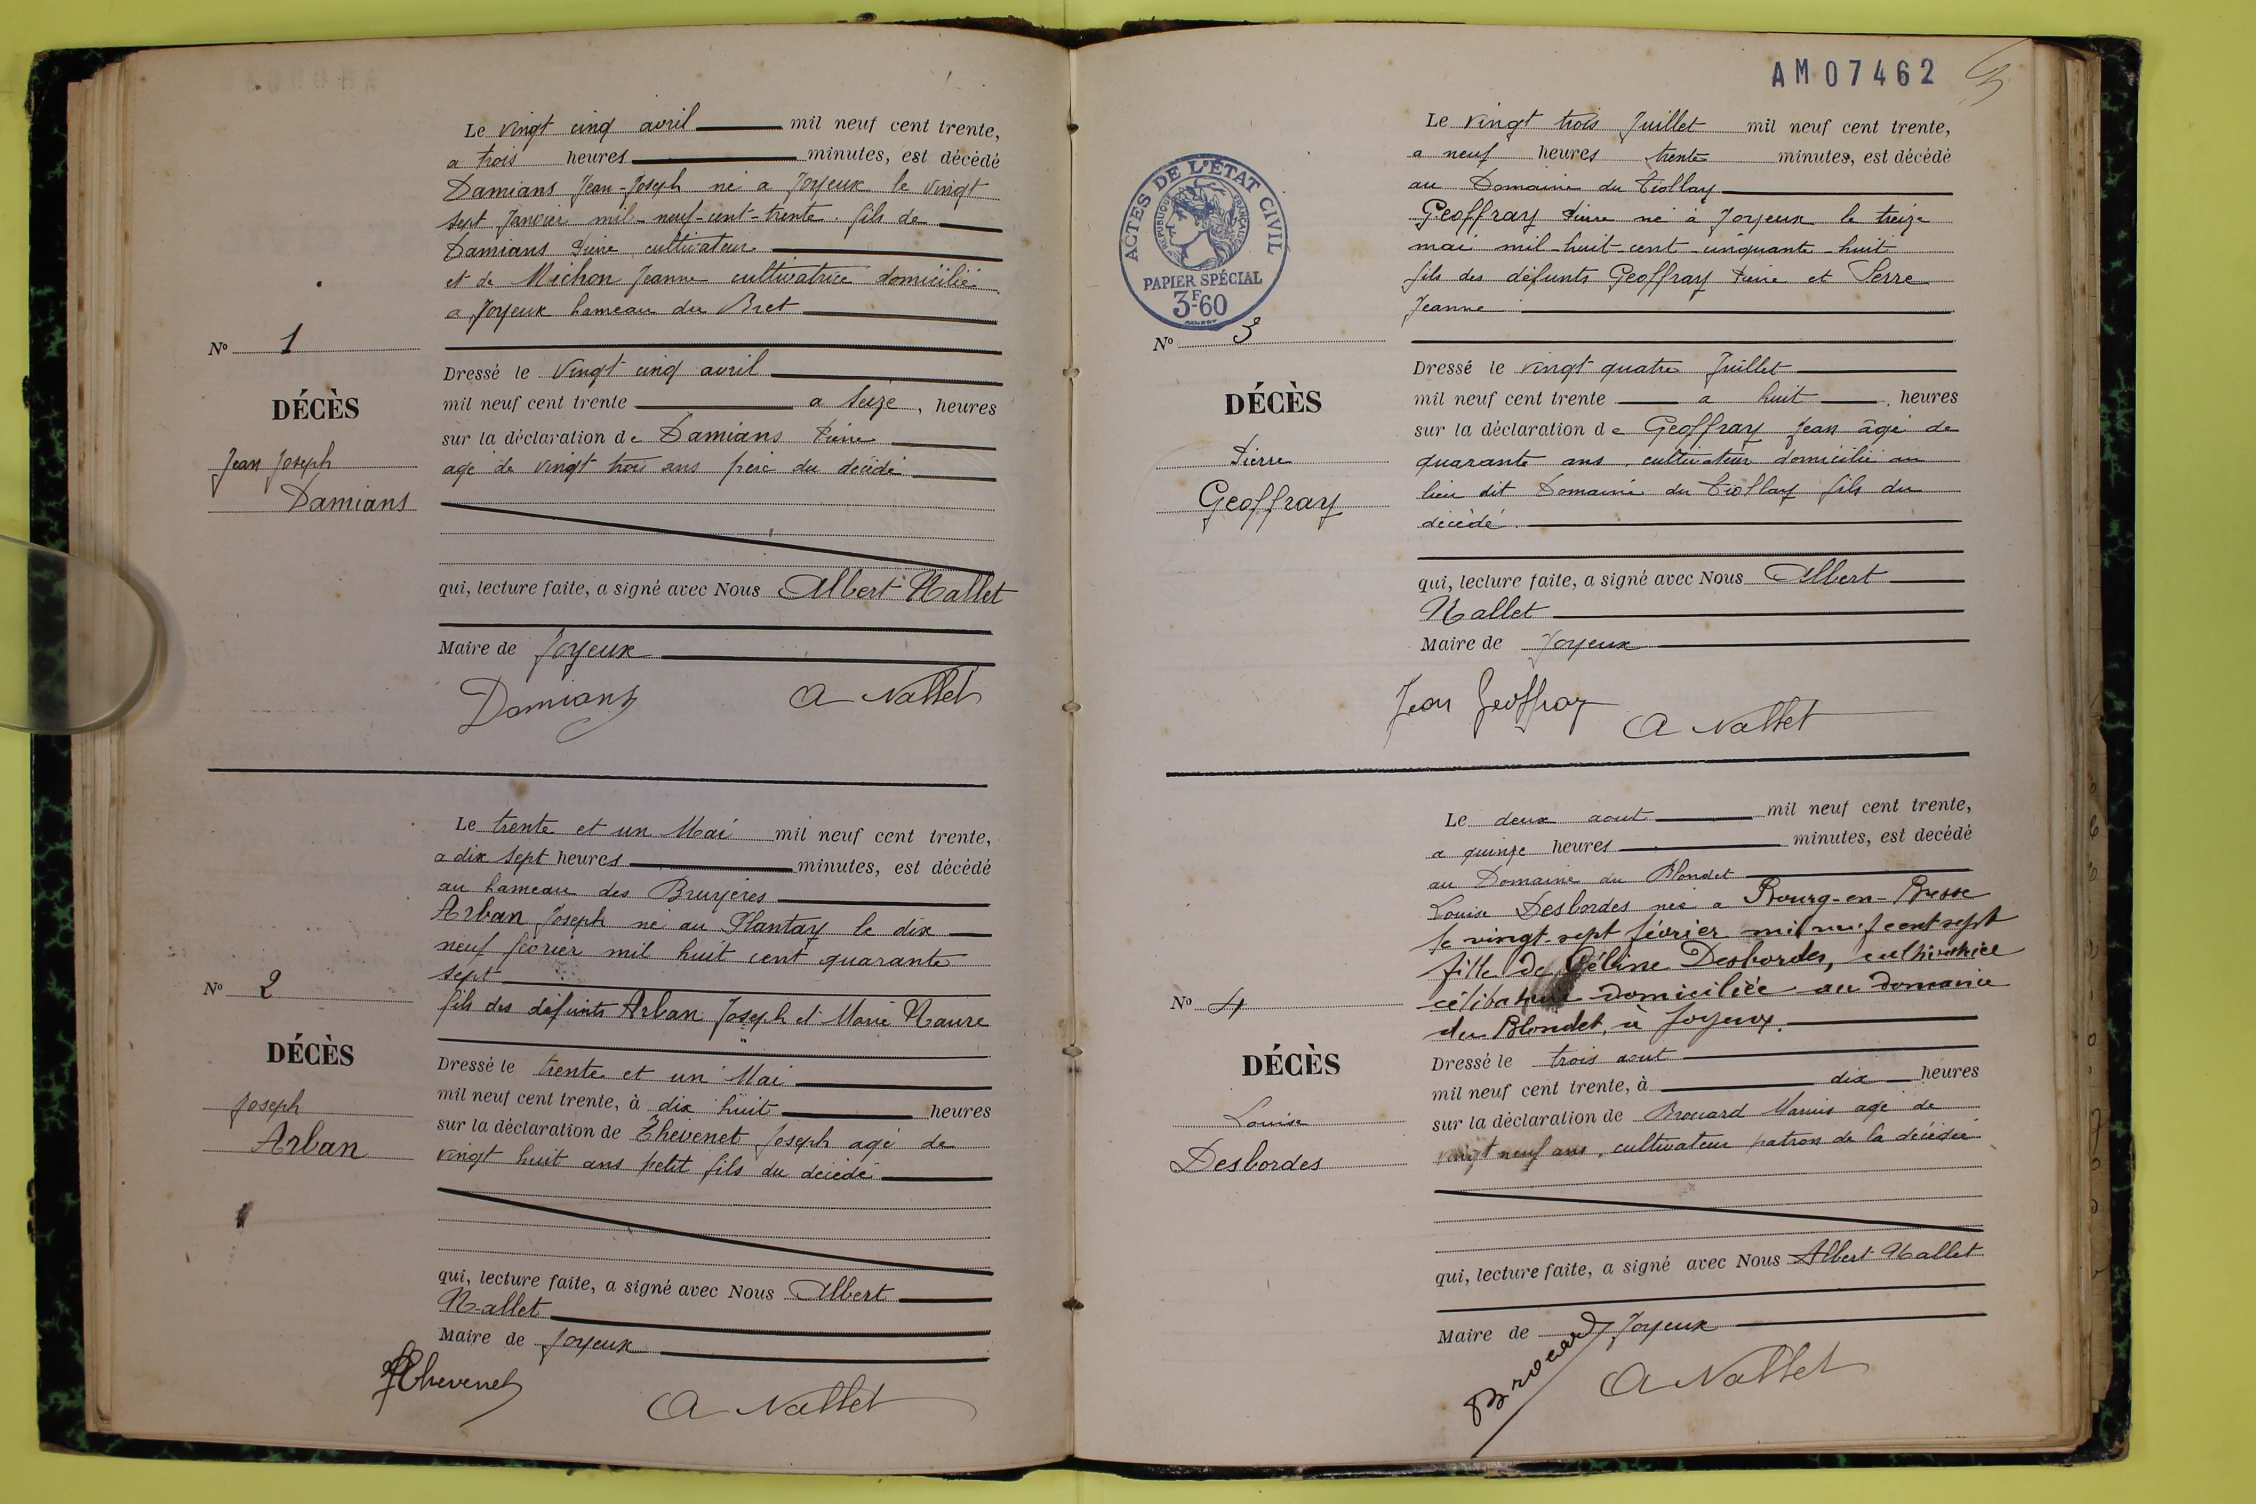 Le vingt cinq avril mil neuf cent trente,
a trois heures minutes, est décédé
Damians Jean-Joseph né a Joyeux le vingt
sept Janvier mil-neuf-cent-trente. fils de
Damians Pierre cultivateur
et de Michon Jeanne cultivatrice domicilié
a Joyeux hameau du Bret
No 1
DÉCÈS
Jean Joseph
Damians
Dressé le vingt cinq avril
mil neuf cent trente a seize, heures
sur la déclaration de Damians Pierre
agé de vingt trois ans père du décédé
qui, lecture faite, a signé avec Nous Albert Nallet
Maire de Joyeux
Damians A Nallet
Le trente et un Mai mil neuf cent trente,
a dix sept heures minutes, est décédé
au hameau des Bruyères
Arban Joseph né au Plantay le dix
neuf février mil huit cent quarante
sept
fils des défunts Arban Joseph et Marie Naure
No 2
DÉCÈS
Joseph
Arban
Dressé le trente et un Mai
mil neuf cent trente, à dix huit heures
sur la déclaration de Thevenet Joseph agé de
vingt huit ans petit fils du décédé
qui, lecture faite, a signé avec Nous Albert
Nallet
Maire de Joyeux
Thevenet
A Nallet
AM07462
Le vingt trois Juillet mil neuf cent trente,
a neuf heures trente minutes, est décédé
au Domaine du Tiollay
Geoffray Pierre né à Joyeux le treize
mai mil-huit-cent cinquante-huit
fils des défunts Geoffray Pierre et Serre
Jeanne
ACTES DE L'ÉTAT CIVIL
RÉPUBLIQUE FRANÇAISE
PAPIER SPÉCIAL
3F-60
No 3
DÉCÈS
Pierre
Geoffray
Dressé le vingt quatre Juillet
mil neuf cent trente a huit, heures
sur la déclaration de Geoffray Jean âgé de
quarante ans, cultivateur domicilié au
lieu dit Domaine du Tiollay fils du
décédé.
qui, lecture faite, a signé avec Nous Albert
Nallet
Maire de Joyeux
Jean Geoffray
A Nallet
Le deux aout mil neuf cent trente,
a quinze heures minutes, est decédé
au Domaine du Blondet
Louise Desbordes née a Bourg-en-Bresse
le vingt-sept février mil neuf cent sept
fille de Céline Desbordes, cultivatrice
célibataire domiciliée au domaine
du Blondet, à Joyeux.
No 4
DÉCÈS
Louise
Desbordes
Dressé le trois aout
mil neuf cent trente, à dix heures
sur la déclaration de Brouard Marius agé de
vingt neuf ans, cultivateur patron de la décédée
qui, lecture faite, a signé avec Nous Albert Nallet
Maire de Joyeux
Brouard
A Nallet